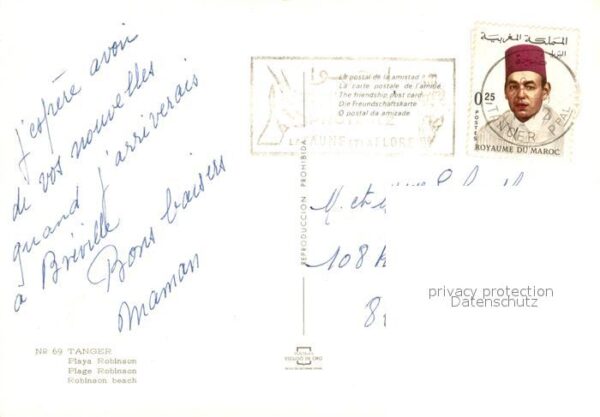 J'espère avoir
de vos nouvelles
quand j'arriverais
à Bréville
Bons baisers
Maman
NR 69 TANGER
Playa Robinson
Plage Robinson
Robinson beach
REPRODUCCION PROHIBIDA
La postal de la amistad
La carte postale de l'amitié
The friendship post card
Die Freundschaftskarte
O postal da amizade
FAUNE ET LA FLORE
المملكة المغربية
0.25
POSTES
ROYAUME DU MAROC
TANGER
108
privacy protection
Datenschutz
ESCUDO DE ORO